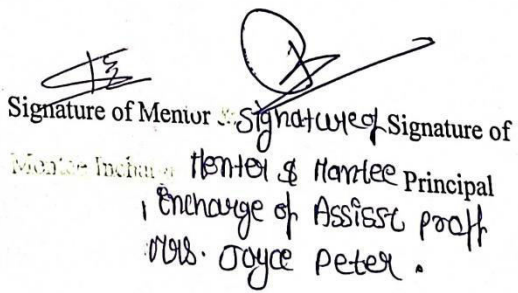 Signature of Mentor Signature of Signature of
Mentee Incharge Mentor & Mantee Principal
, Encharge of Assisst proff
Mrs. Joyce Peter.